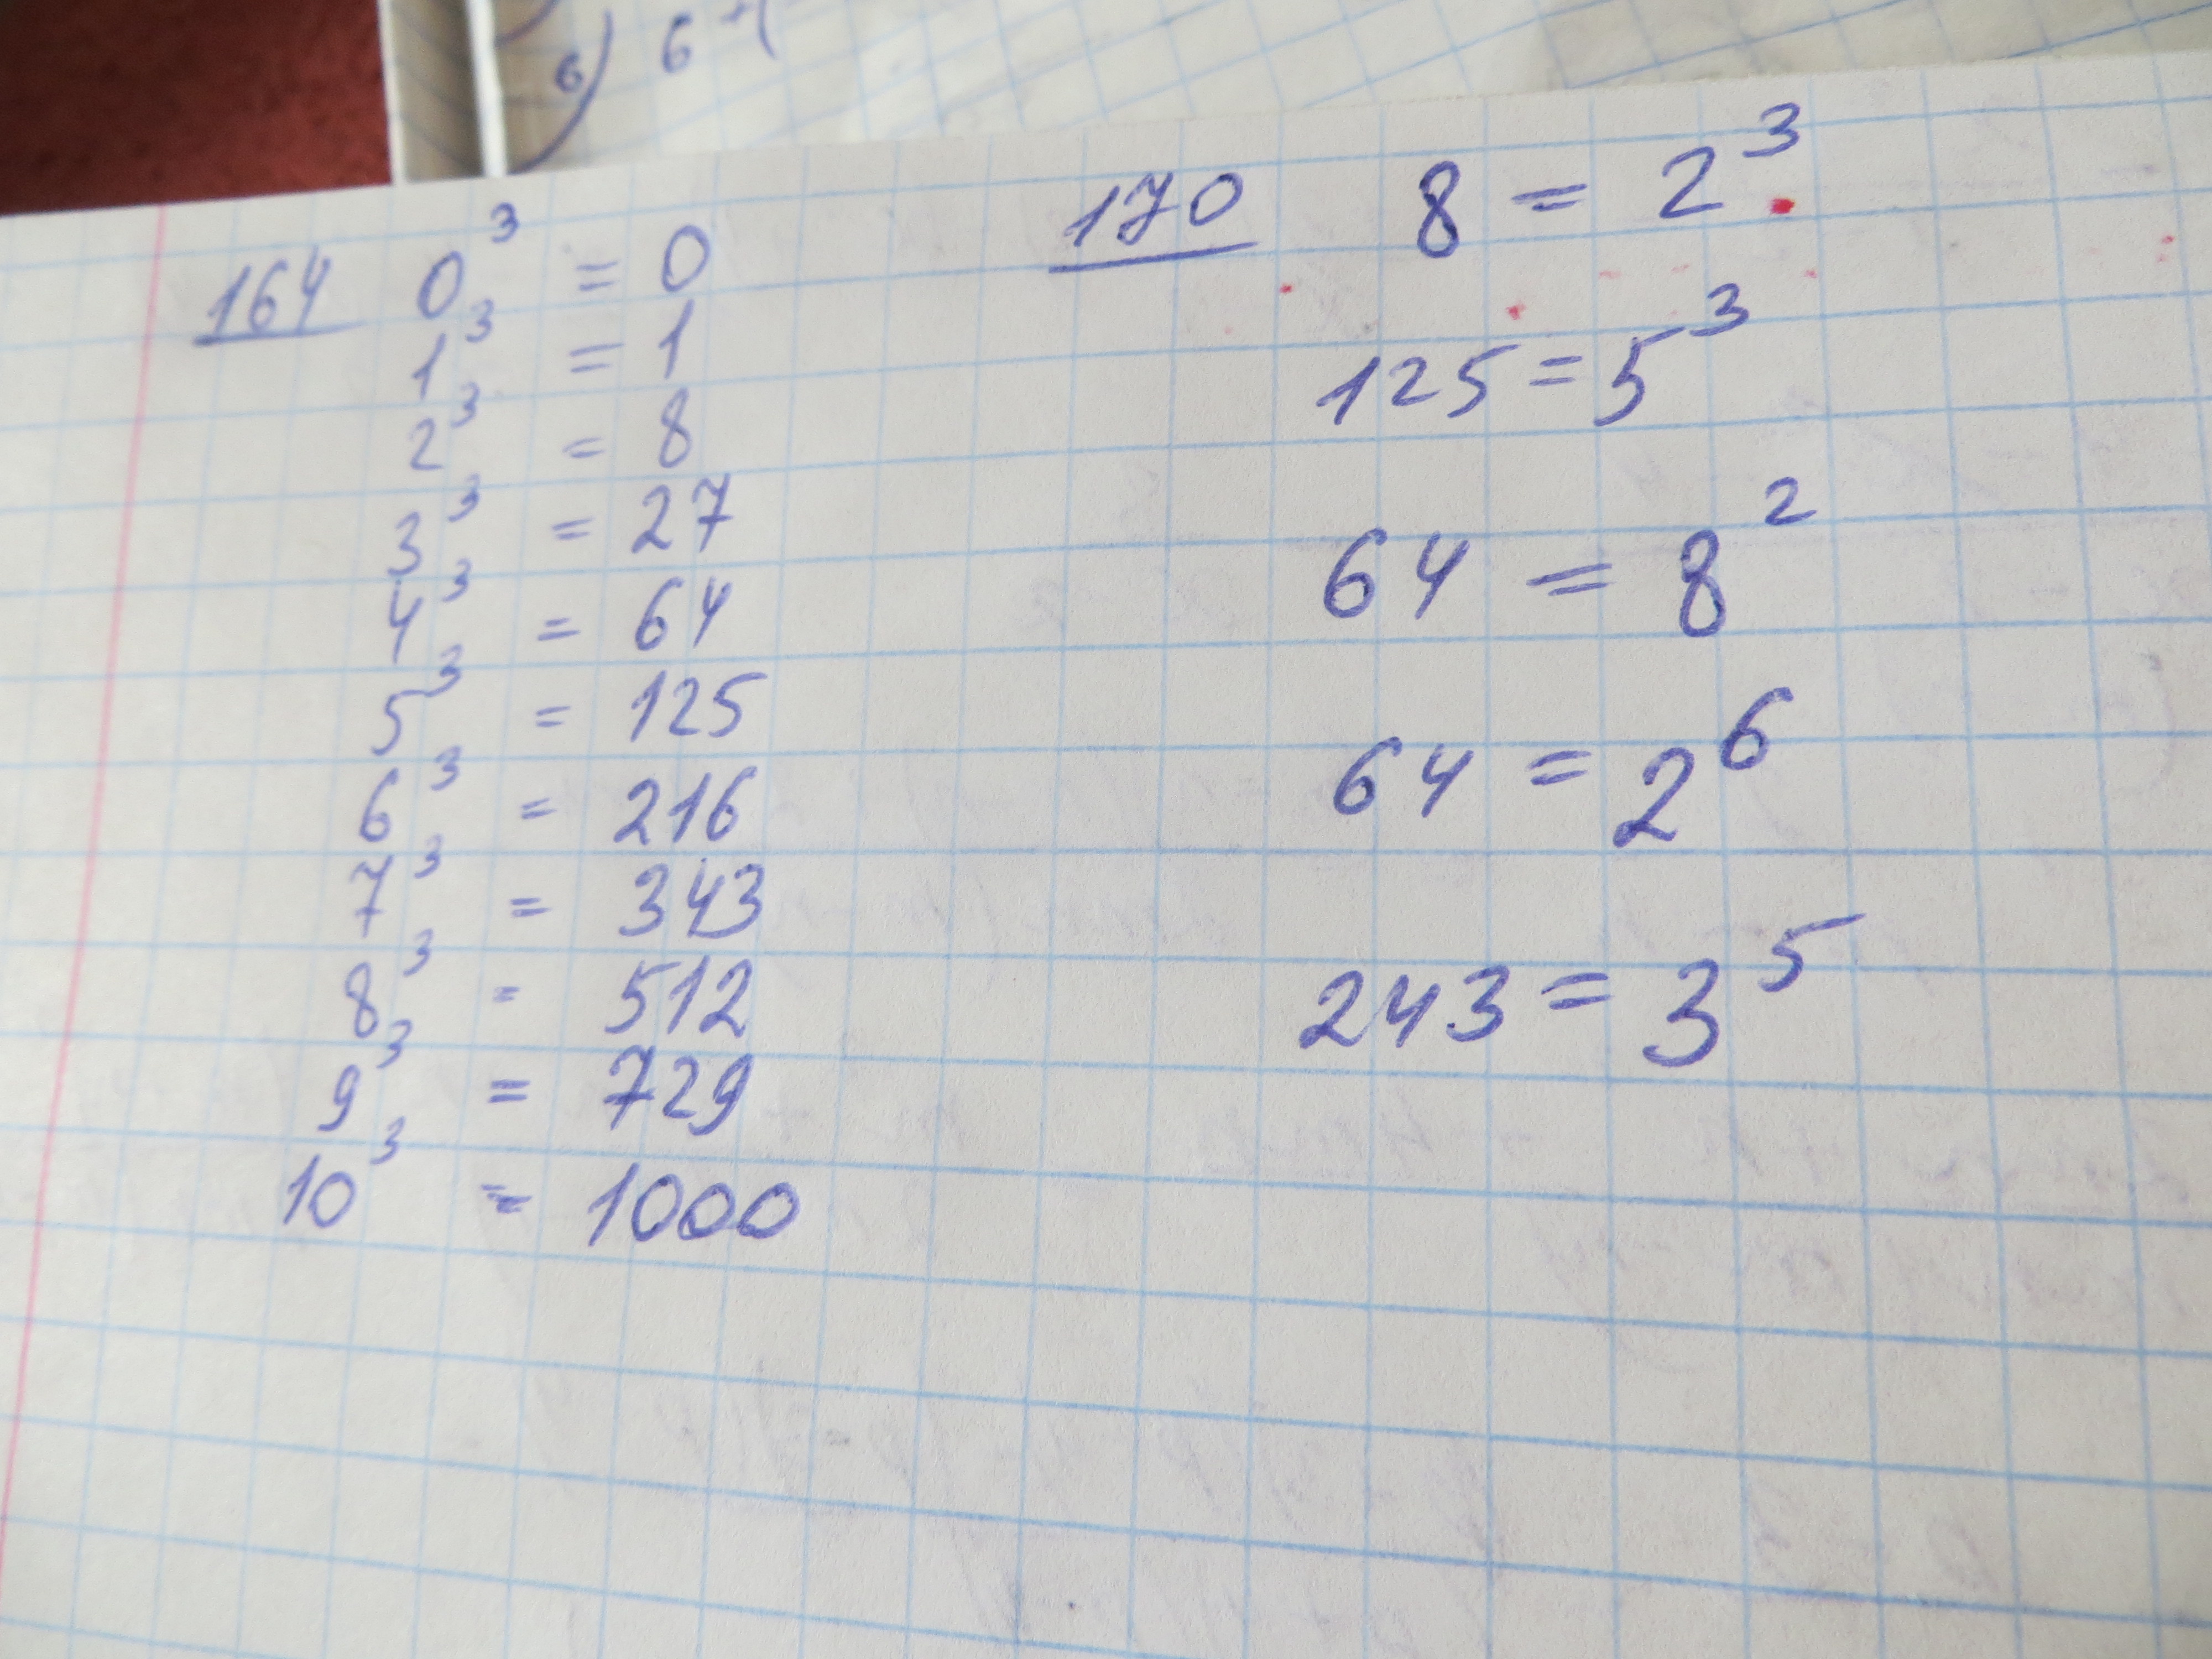 в) 6
164 0³ = 0
1³ = 1
2³ = 8
3³ = 27
4³ = 64
5³ = 125
6³ = 216
7³ = 343
8³ = 512
9³ = 729
10³ = 1000
170 8 = 2³
125 = 5³
64 = 8²
64 = 2⁶
243 = 3⁵